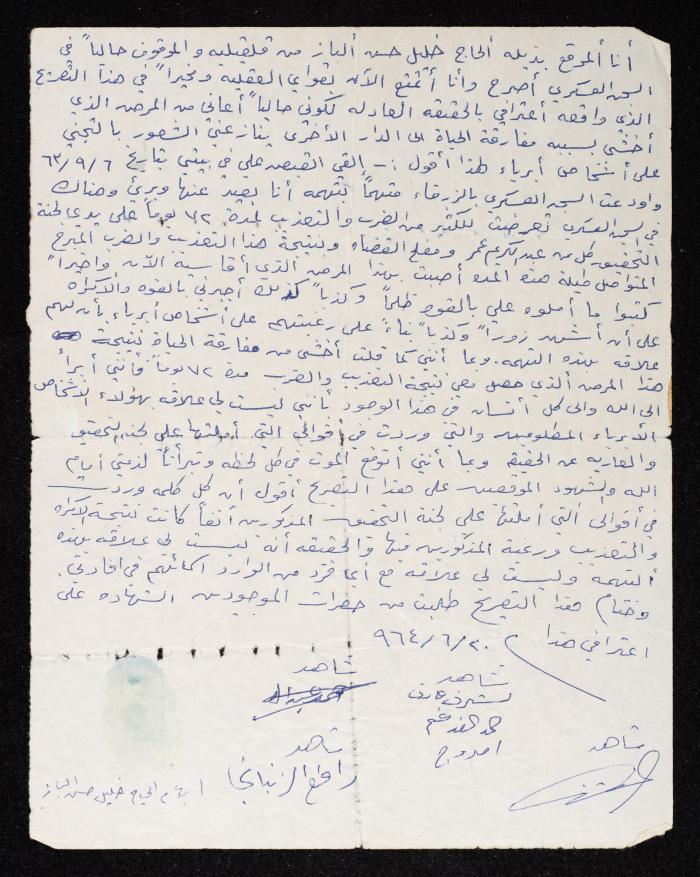 أنا ألموقع بذيله ألحاج خليل حسن ألباز من قلقيليه والموقوف حالياً في
السجن العسكري أصرح وأنا أتمتع الآن بقواي العقليه ومخيراً في هذا التصريح
الذي واقعه أعترافي بالحقيقه العادله لكوني حالياً أعاني من المرض الذي
أخشى بسببه مفارقة الحياة الى الدار الأخرى ينازعني الشعور بالتجني
على أشخاص أبرياء هذا أقول :- ألقي القبض علي في بيتي بتاريخ ٦٣/٩/٦
واودعت السجن العسكري بالزرقاء متهماً بتهمه أنا بعيد عنها وبريء وهناك
في السجن العسكري تعرضت للكثير من الضرب والتعذيب لمدة ٧٢ يوماً على يدي لجنة
التحقيق كل من عبد الكريم عمر ومفلح القضاه ونتيجة هذا التعذيب والضرب المبرح
المتواصل طيلة هذه المده أصبت بهذا المرض الذي أقاسية الآن وأخيراً
كتبوا ما أملوه علي بالقوه ظلماً وكذباً كذلك أجبرني بالقوه والأكراه
على أن أشهد زوراً وكذباً بناءً على رغبتهم على أشخاص أبرياء بأن لهم
علاقه بهذه التهمه. وبما أنني كما قلت أخشى من مفارقة الحياة نتيجة
هذا المرض ألذي حصل معي نتيجة التعذيب والضرب مدة ٧٢ يوماً فأنني أبرأ
الى الله والى كل أنسان في هذا الوجود بأنني ليست لي علاقه بهؤلاء الاشخاص
الأبرياء المظلومين والتي وردت في أقوالي التي أمليتها على لجنة التحقيق
والعاريه عن الحقيقه وبما أنني أتوقع الموت في كل لحظه وتبرأتاً لذمتي أمام
الله والشهود الموقعين على هذا التصريح أقول أن كل كلمه وردت
في أقوالي ألتي أمليتها على لجنة التحقيق المذكورين أنفاً كانت نتيجة الأكراه
والتعذيب ورغبة المذكورين فيها والحقيقه أنه ليست لي علاقه بهذه
ألتهمه وليست لي علاقه مع أي فرد من الوارد أسمائهم في افادتي.
وختام هذا التصريح طلبت من حضرات الموجودين الشهاده على
اعترافي هذا ٩٦٤/٦/٢٠
شاهد
شاهد
شاهد
شاهد
رافع الزنباني
ابهام الحاج خليل حسن الباز